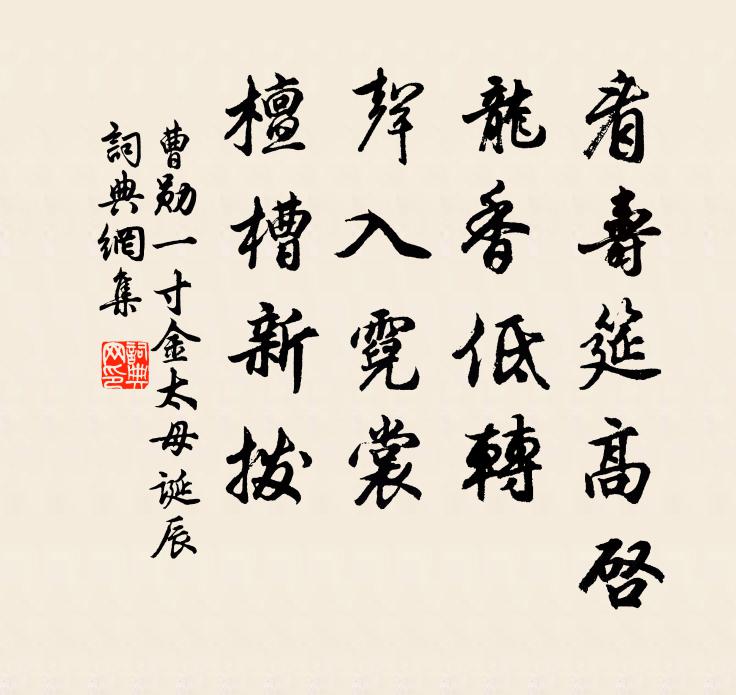 看壽筵高啓
龍香低轉
聲入霓裳
檀槽新撥
曹勛一寸金太母誕辰
詞典網集
詞典網印